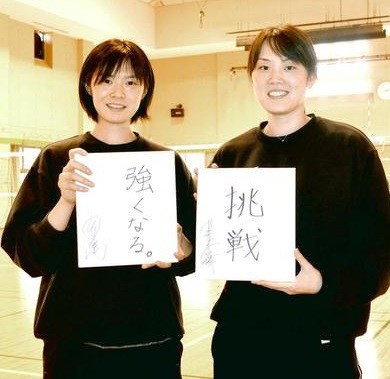 強くなる。
挑戦